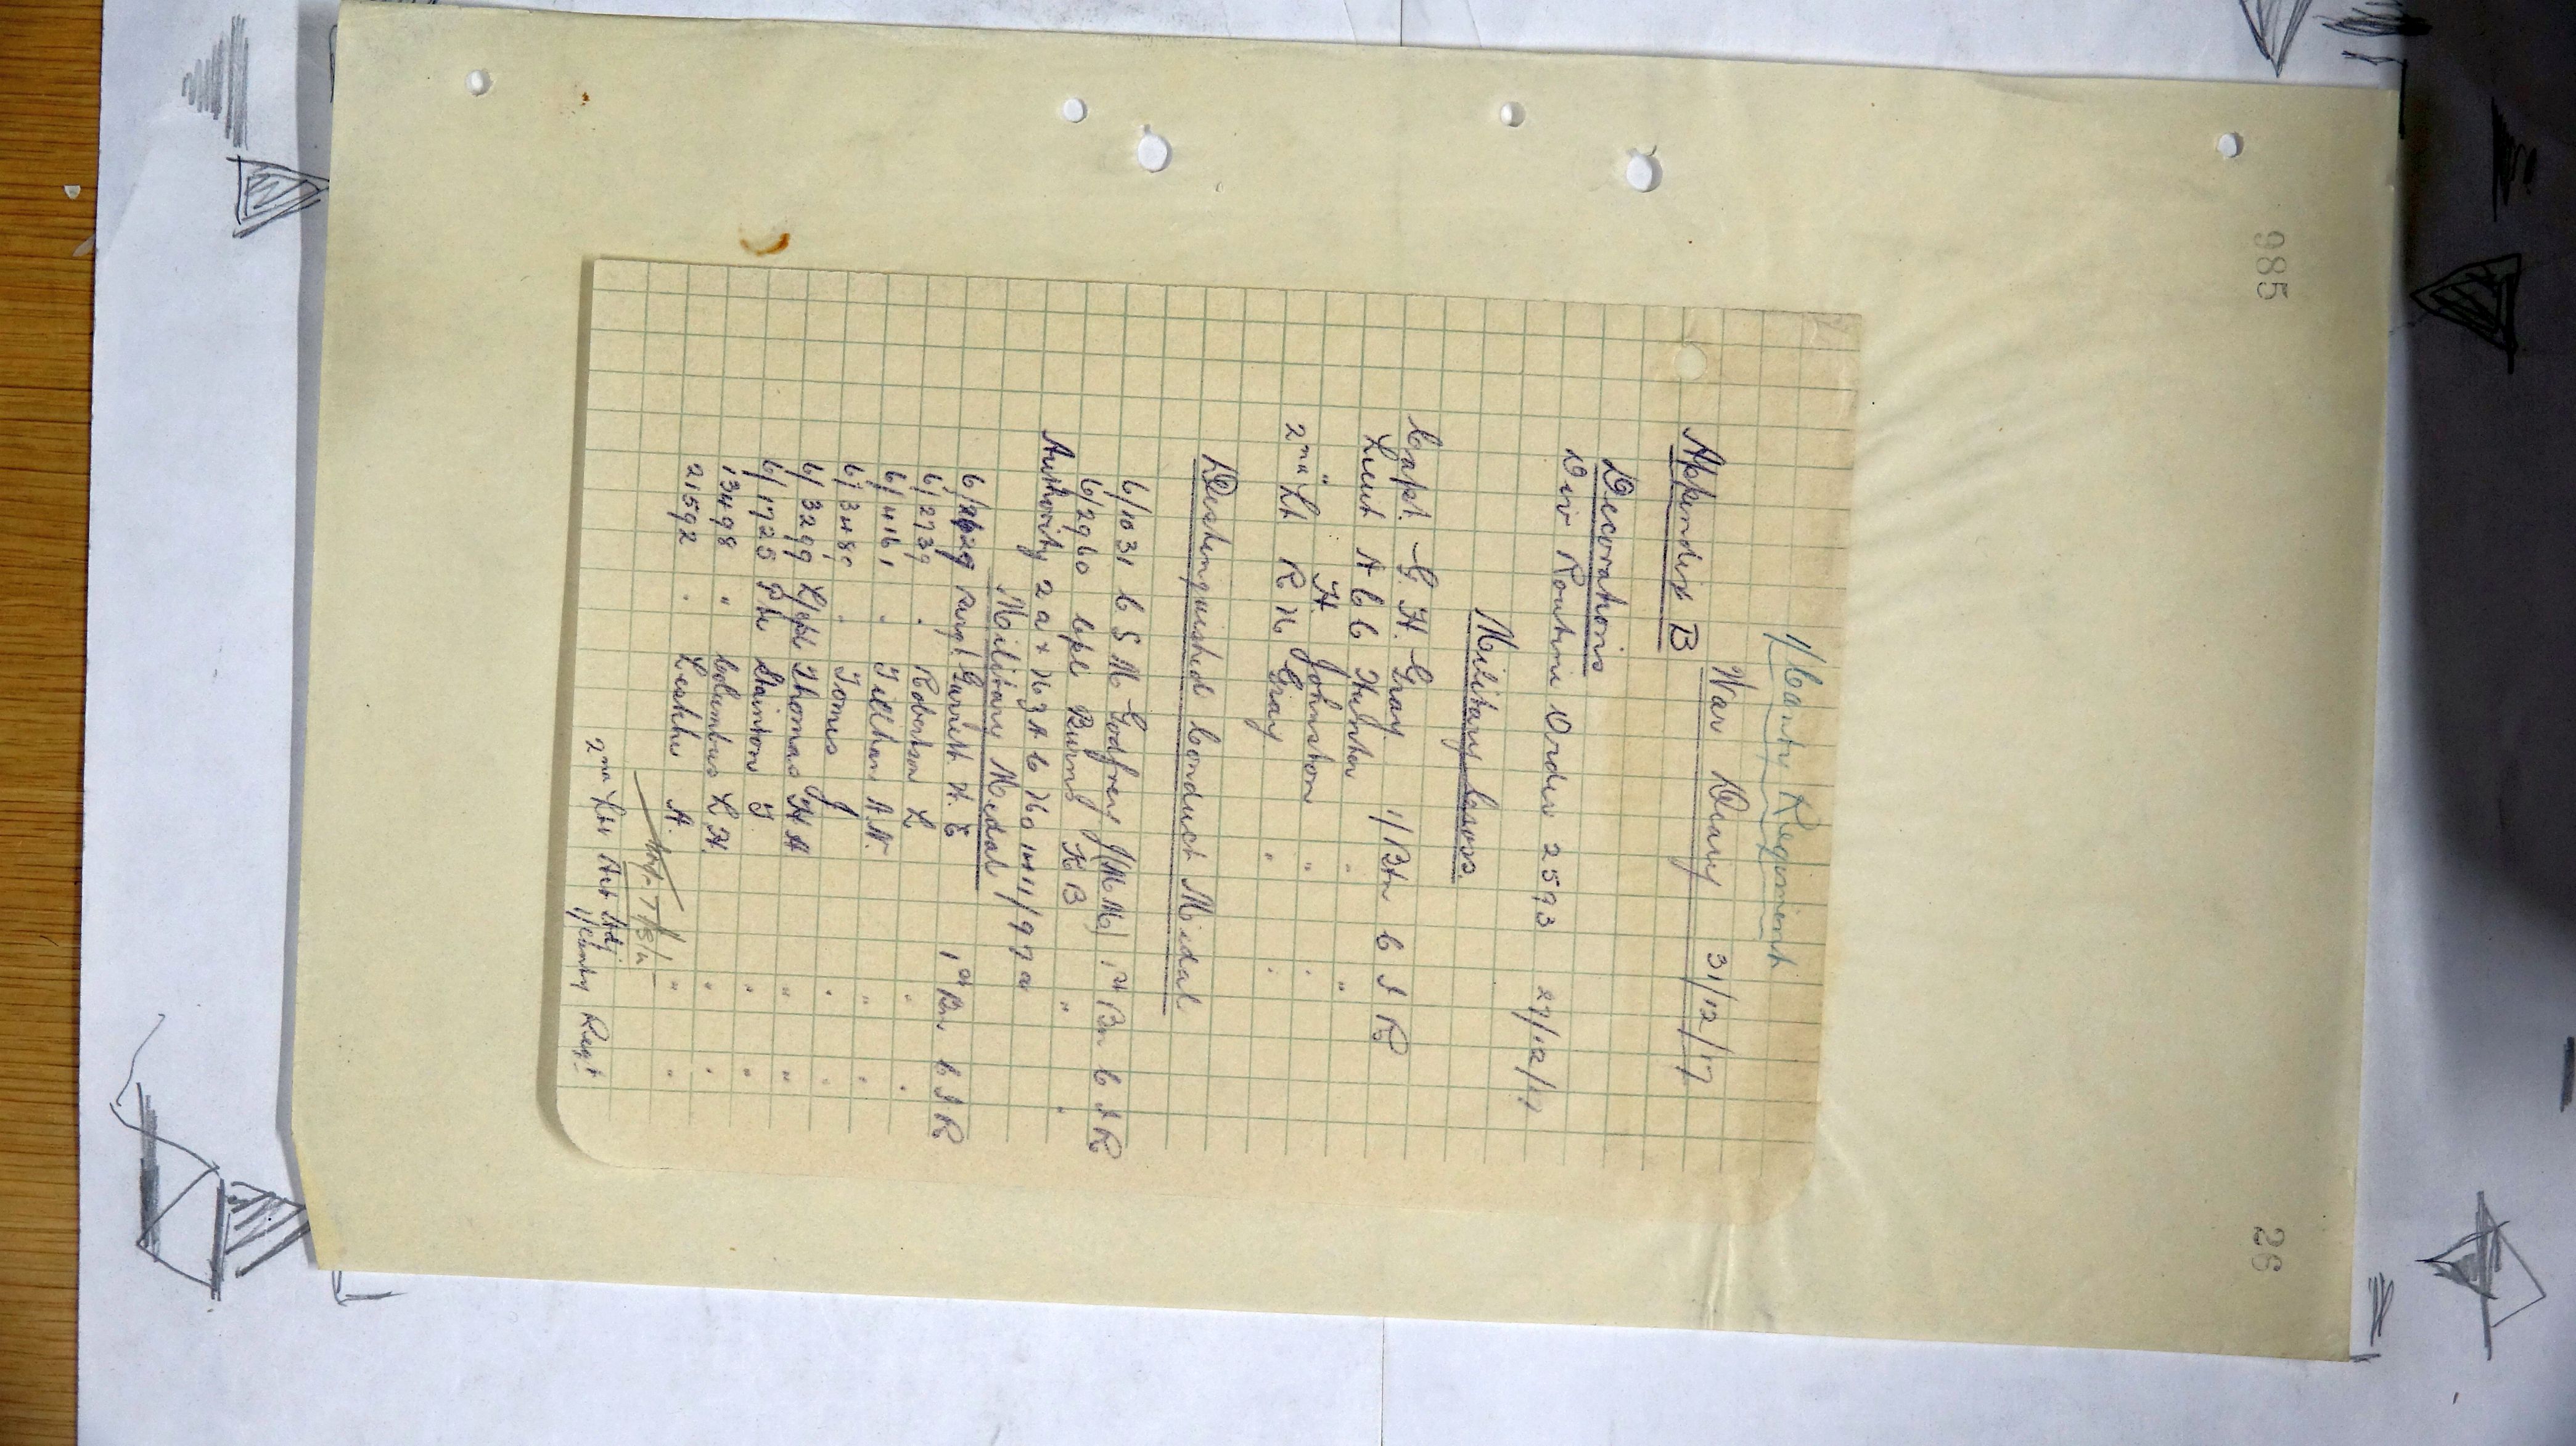 985
26
1/Canty Regiment
War Diary 31/12/17
Appendix B
Decorations
Div Routine Order 2593 27/12/17
Military Cross.
Capt. G. H. Gray 1/Btn C I R
Lieut A C C Hunter " "
" H. Johnston " "
2nd Lt R N Gray " "
Distinguished Conduct Medal
6/1031 C S M Godfrey J (M M) 1st Bn C I R
6/2960 Cpl Burns K B " "
Authority 2 a x N Z A C No 1441/97 a
Military Medal
6/2629 Sergt Garrett H. E 1st Bn C I R
6/2739 " Robertson L " "
6/4161 " A. W. " "
6/3480 " Tomes J " "
6/3299 L/Cpl Thomas H A " "
6/1725 Pte Stainton T " "
13498 " Columbus L H. " "
21592 " Leathe A. " "
2nd Lt Act Adj
1/Canty Regt